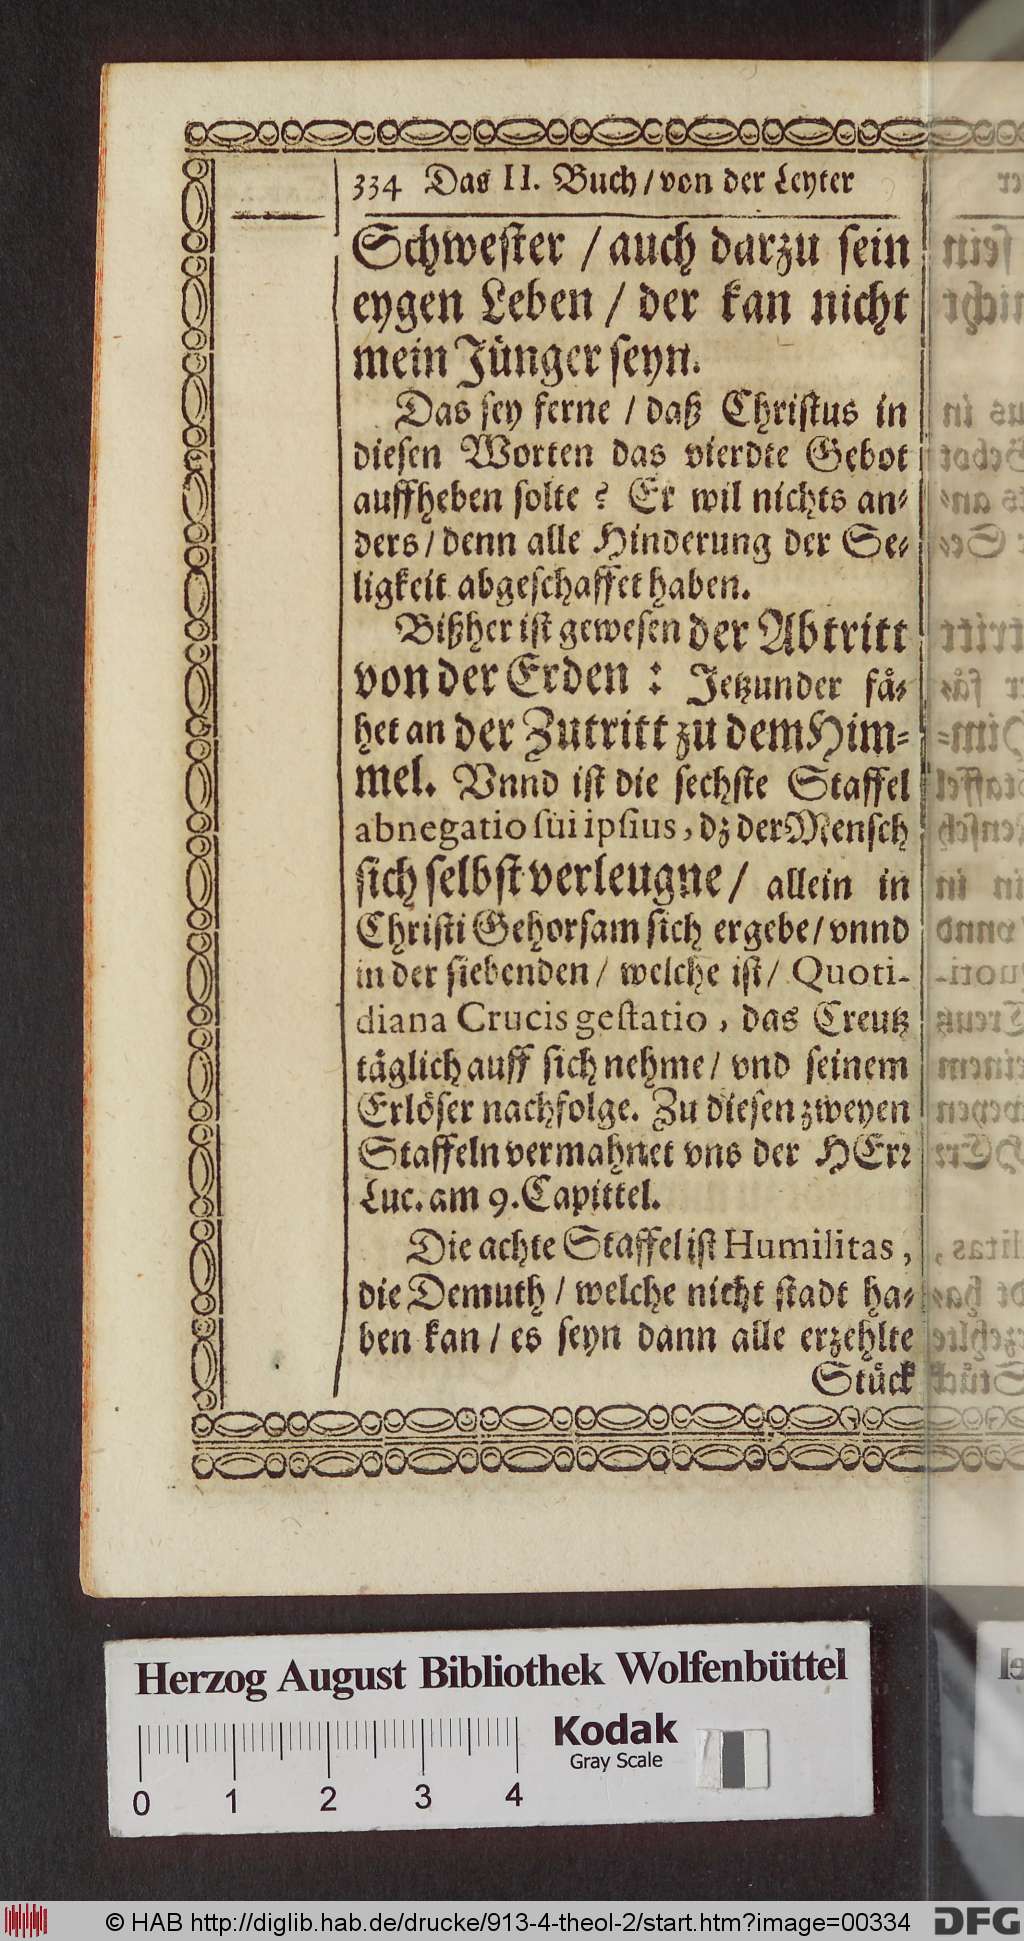 334 Das II. Buch/von der Leyter
Schwester / auch darzu sein
eygen Leben / der kan nicht
mein Jünger seyn.
Das sey ferne / daß Christus in
diesen Worten das vierdte Gebot
auffheben solte? Er wil nichts an-
ders/denn alle Hinderung der Se-
ligkeit abgeschaffet haben.
Bißher ist gewesen der Abtritt
von der Erden : Jetzunder fä-
het an der Zutritt zu dem Him-
mel. Vnnd ist die sechste Staffel
abnegatio sui ipsius, dz der Mensch
sich selbst verleugne/ allein in
Christi Gehorsam sich ergebe/vnnd
in der siebenden/ welche ist/ Quoti-
diana Crucis gestatio, das Creutz
täglich auff sich nehme/ vnd seinem
Erlöser nachfolge. Zu diesen zweyen
Staffeln vermahnet vns der HErr
Luc. am 9. Capittel.
Die achte Staffel ist Humilitas,
die Demuth / welche nicht stadt ha-
ben kan / es seyn dann alle erzehlte
Stück
Herzog August Bibliothek Wolfenbüttel
Kodak
Gray Scale
0 1 2 3 4
© HAB http://diglib.hab.de/drucke/913-4-theol-2/start.htm?image=00334
DFG